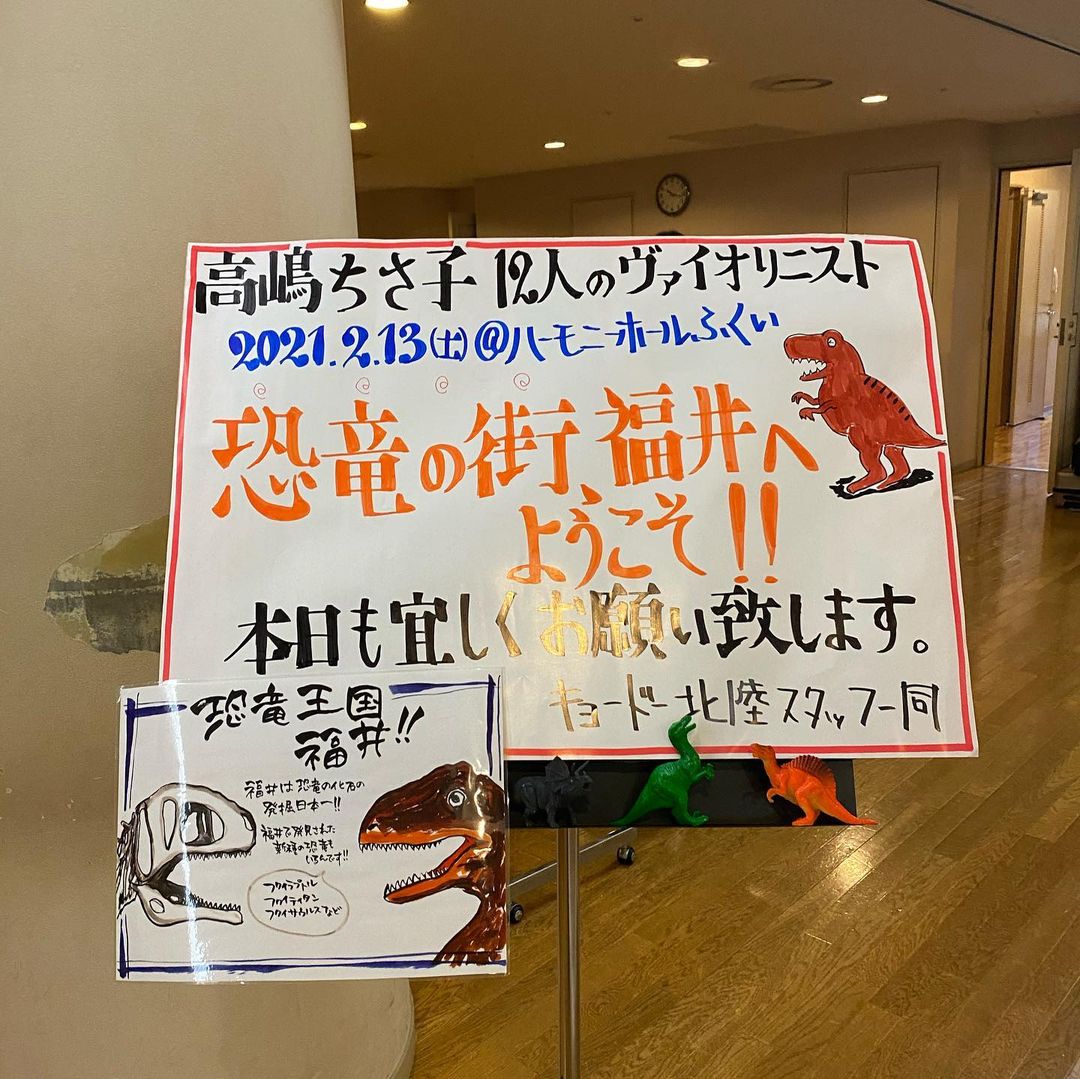 高嶋ちさ子 12人のヴァイオリニスト
2021.2.13(土)@ハーモニーホールふくい
恐竜の街、福井へ
ようこそ!!
本日も宜しくお願い致します。
キョードー北陸スタッフ一同
恐竜王国
福井!!
福井は恐竜の化石の
発掘日本一!!
福井で発見された
新種の恐竜も
いるんです!!
フクイラプトル
フクイティタン
フクイサウルスなど